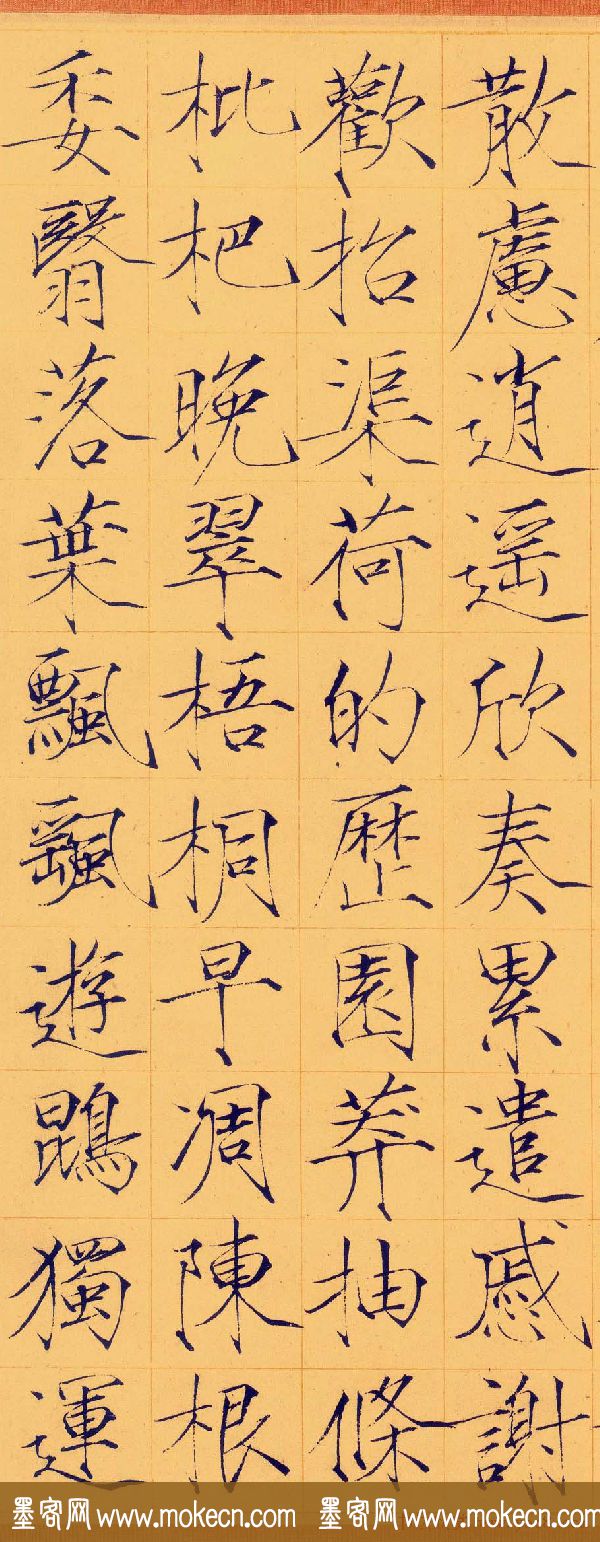 散慮逍遥欣奏累遣慼謝
歡招渠荷的歷園莽抽條
枇杷晚翠梧桐早凋陳根
委翳落葉飄飖遊鵾獨運
墨客网 www.mokecn.com 墨客网 www.mokecn.com